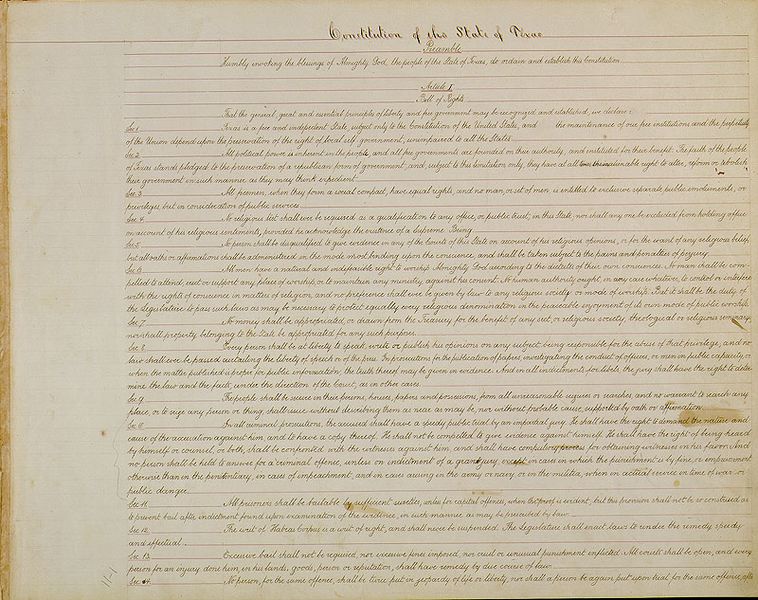 Constitution of the State of Texas
Preamble
Humbly invoking the blessings of Almighty God, the people of the State of Texas, do ordain and establish this Constitution
Article I
Bill of Rights
That the general, great and essential principles of liberty and free government may be recognized and established, we declare:
Sec 1. Texas is a free and independent State, subject only to the Constitution of the United States, and the maintenance of our free institutions and the perpetuity
of the Union depend upon the preservation of the right of local self-government, unimpaired to all the States.
Sec 2. All political power is inherent in the people, and all free governments are founded on their authority, and instituted for their benefit. The faith of the people
of Texas stands pledged to the preservation of a republican form of government, and, subject to this limitation only, they have at all times the inalienable right to alter, reform or abolish
their government in such manner as they may think expedient.
Sec 3. All freemen, when they form a social compact, have equal rights, and no man, or set of men, is entitled to exclusive separate public emoluments, or
privileges, but in consideration of public services.
Sec 4. No religious test shall ever be required as a qualification to any office, or public trust, in this State; nor shall any one be excluded from holding office
on account of his religious sentiments, provided he acknowledge the existence of a Supreme Being.
Sec 5. No person shall be disqualified to give evidence in any of the Courts of this State on account of his religious opinions, or for the want of any religious belief,
but all oaths or affirmations shall be administered in the mode most binding upon the conscience, and shall be taken subject to the pains and penalties of perjury.
Sec 6. All men have a natural and indefeasible right to worship Almighty God according to the dictates of their own consciences. No man shall be com-
pelled to attend, erect or support any place of worship, or to maintain any ministry against his consent. No human authority ought, in any case whatever, to control or interfere
with the rights of conscience in matters of religion, and no preference shall ever be given by law to any religious society or mode of worship. But it shall be the duty of
the Legislature to pass such laws as may be necessary to protect equally every religious denomination in the peaceable enjoyment of its own mode of public worship.
Sec 7. No money shall be appropriated, or drawn from the Treasury for the benefit of any sect, or religious society, theological or religious seminary,
nor shall property belonging to the State be appropriated for any such purposes.
Sec 8. Every person shall be at liberty to speak, write or publish his opinions on any subject, being responsible for the abuse of that privilege; and no
law shall ever be passed curtailing the liberty of speech or of the press. In prosecutions for the publication of papers, investigating the conduct of officers, or men in public capacity, or
when the matter published is proper for public information, the truth thereof may be given in evidence. And in all indictments for libels, the jury shall have the right to deter-
mine the law and the facts, under the direction of the Court, as in other cases.
Sec 9. The people shall be secure in their persons, houses, papers and possessions, from all unreasonable seizures or searches, and no warrant to search any
place, or to seize any person or thing, shall issue without describing them as near as may be, nor without probable cause, supported by oath or affirmation.
Sec 10. In all criminal prosecutions, the accused shall have a speedy public trial by an impartial jury. He shall have the right to demand the nature and
cause of the accusation against him, and to have a copy thereof. He shall not be compelled to give evidence against himself. He shall have the right of being heard
by himself or counsel, or both, shall be confronted with the witnesses against him, and shall have compulsory process for obtaining witnesses in his favor. And
no person shall be held to answer for a criminal offense, unless on indictment of a grand jury, except in cases in which the punishment is by fine, or imprisonment
otherwise than in the penitentiary, in cases of impeachment, and in cases arising in the army or navy, or in the militia, when in actual service in time of war or
public danger.
Sec 11. All prisoners shall be bailable by sufficient sureties, unless for capital offenses, when the proof is evident; but this provision shall not be so construed as
to prevent bail after indictment found upon examination of the evidence, in such manner as may be prescribed by law.
Sec 12. The writ of Habeas Corpus is a writ of right, and shall never be suspended. The Legislature shall enact laws to render the remedy speedy
and effectual.
Sec 13. Excessive bail shall not be required, nor excessive fines imposed, nor cruel or unusual punishment inflicted. All courts shall be open, and every
person for an injury done him, in his lands, goods, person or reputation, shall have remedy by due course of law.
Sec 14. No person, for the same offense, shall be twice put in jeopardy of life or liberty, nor shall a person be again put upon trial for the same offense, after